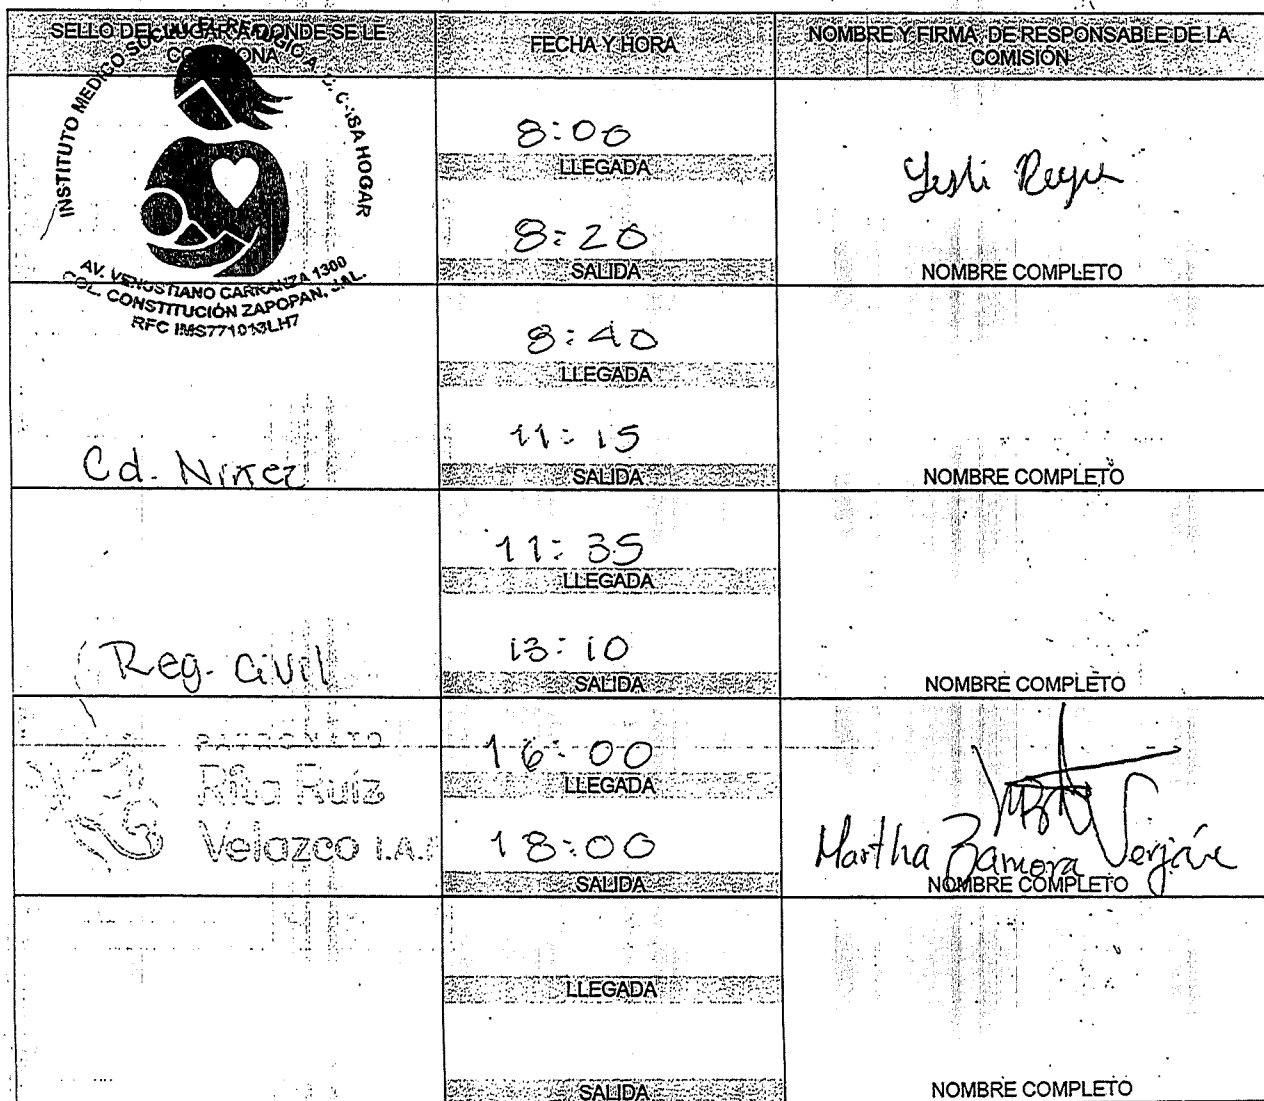 SELLO DEL LUGAR A DONDE SE LE
COMISIONA
FECHA Y HORA
NOMBRE Y FIRMA DE RESPONSABLE DE LA
COMISIÓN
INSTITUTO MEDICO SOCIAL EL REFUGIO A.C. CASA HOGAR
AV. VENUSTIANO CARRANZA 1300
COL. CONSTITUCIÓN ZAPOPAN, JAL.
RFC IMS771013LH7
8:00
LLEGADA
8:20
SALIDA
Yesli
NOMBRE COMPLETO
Cd. Niñez
8:40
LLEGADA
11:15
SALIDA
NOMBRE COMPLETO
Reg. Civil
11:35
LLEGADA
13:10
SALIDA
NOMBRE COMPLETO
PATRONATO
Rita Ruiz
Velazco I.A.P
16:00
LLEGADA
18:00
SALIDA
Martha Zamora
NOMBRE COMPLETO
LLEGADA
SALIDA
NOMBRE COMPLETO